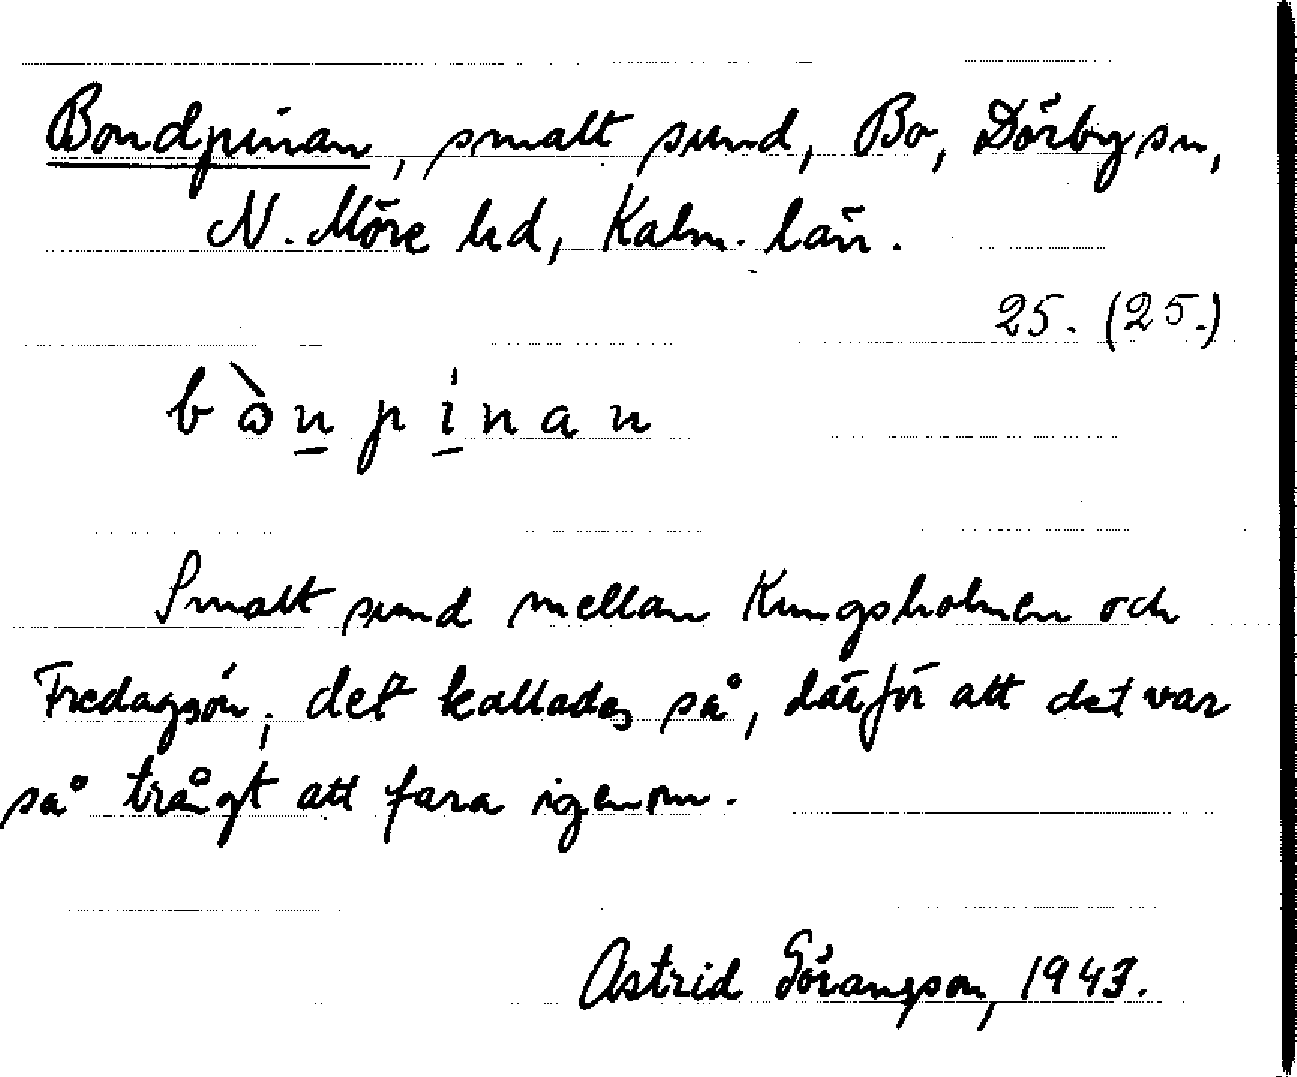 Bondpinan, smalt sund, Bo, Dörby sn,
N. Möre hd, Kalm. län.
25. (25.)
bònpinan
Smalt sund mellan Kungsholmen och
Fredagsön, det kallades så, därför att det var
så trångt att fara igenom.
Astrid Göransson, 1943.